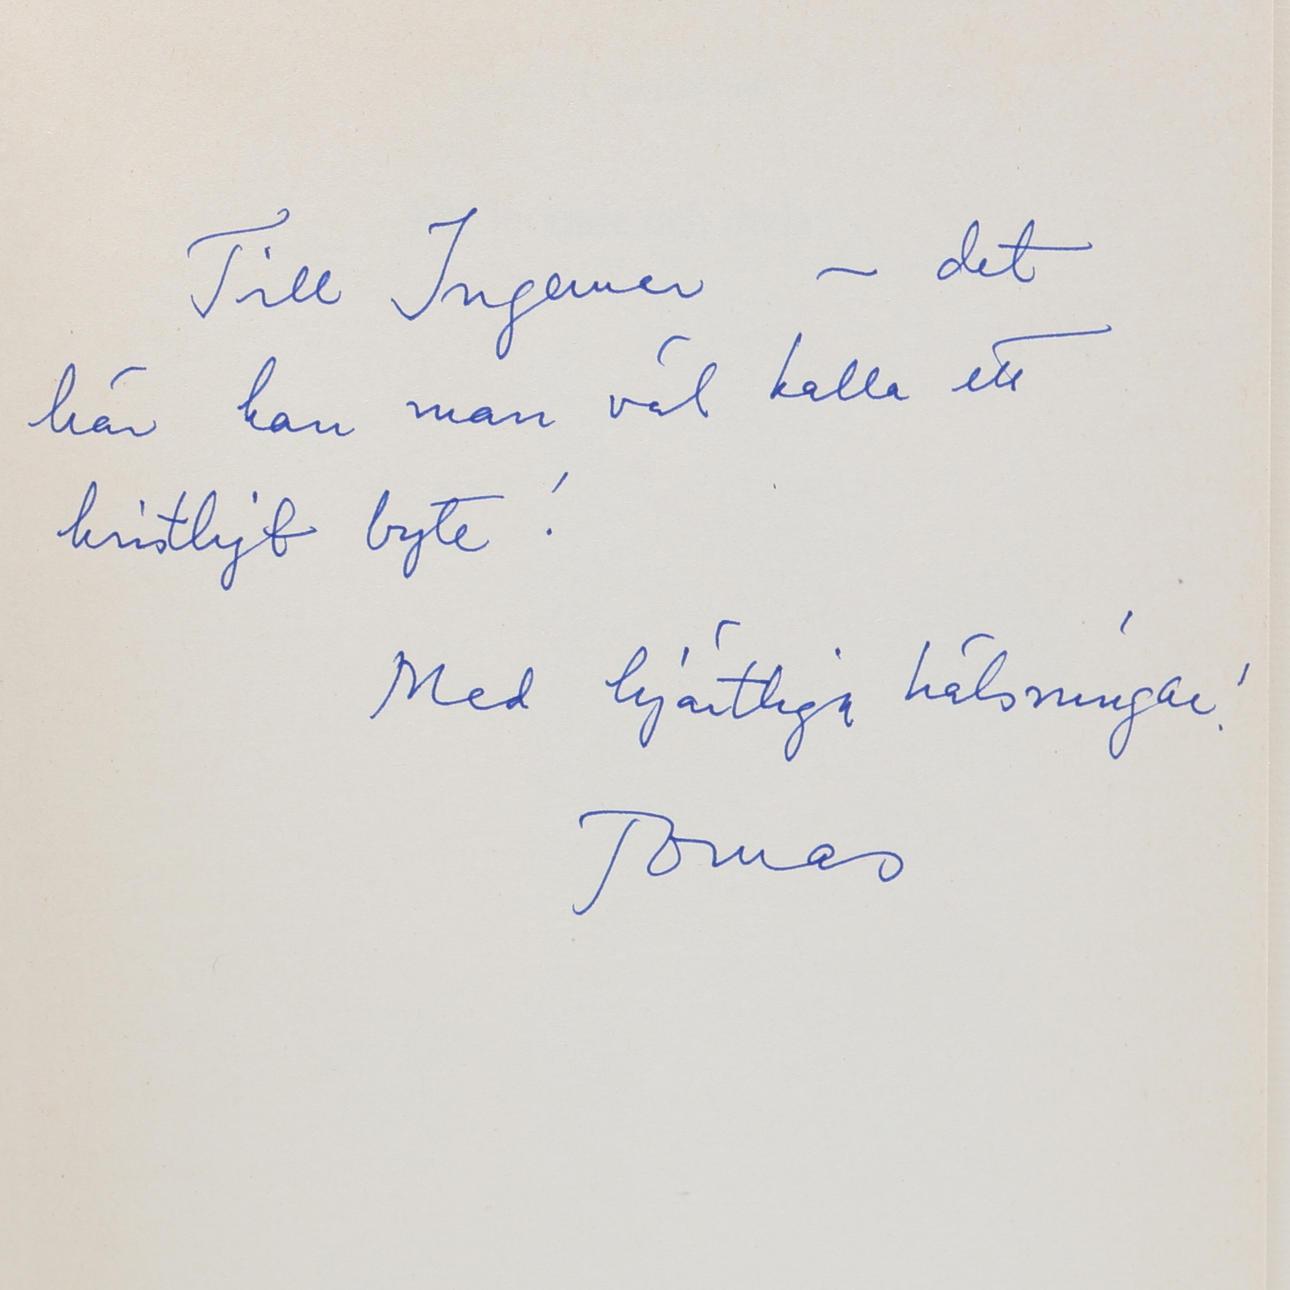 Till Ingemar – det
här kan man väl kalla ett
kristligt byte!
Med hjärtliga hälsningar!
Tomas